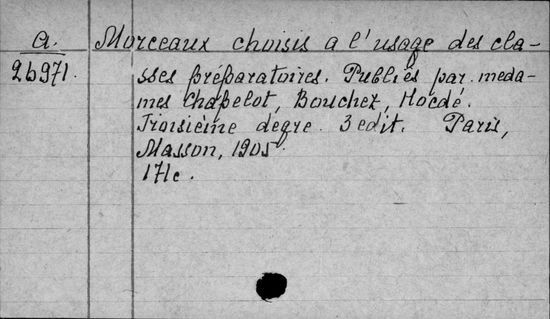 a. Morceaux choisis a l'usage des cla-
26971. sses préparatoires. Publiés par medа-
mes Chapelot, Bouchez, Hocdé.
Troisième degre. 3 edit. Paris,
Masson, 1905.
171c.